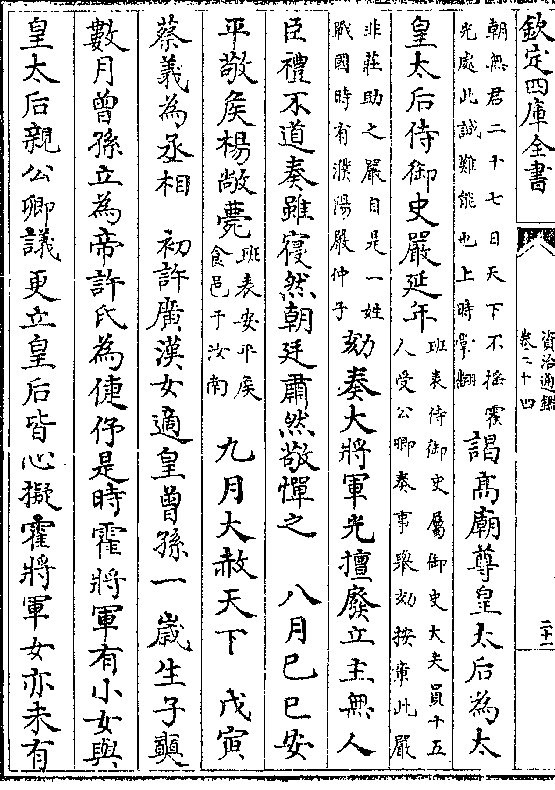 欽定四庫全書
資治通鑑
卷二十四
二十一
朝無君二十七日天下不搖霍
光處此誠難能也上時掌翻
謁高廟尊皇太后為太
皇太后侍御史嚴延年
班表侍御史屬御史大夫員十五
人受公卿奏事舉劾按章此嚴
非莊助之嚴自是一姓
戰國時有濮陽嚴仲子
劾奏大將軍光擅廢立主無人
臣禮不道奏雖寢然朝廷肅然敬憚之 八月己巳安
平敬侯楊敞薨
班表安平侯
食邑于汝南
九月大赦天下 戊寅
蔡義為丞相 初許廣漢女適皇曾孫一歲生子奭
數月曾孫立為帝許氏為倢伃是時霍將軍有小女與
皇太后親公卿議更立皇后皆心擬霍將軍女亦未有